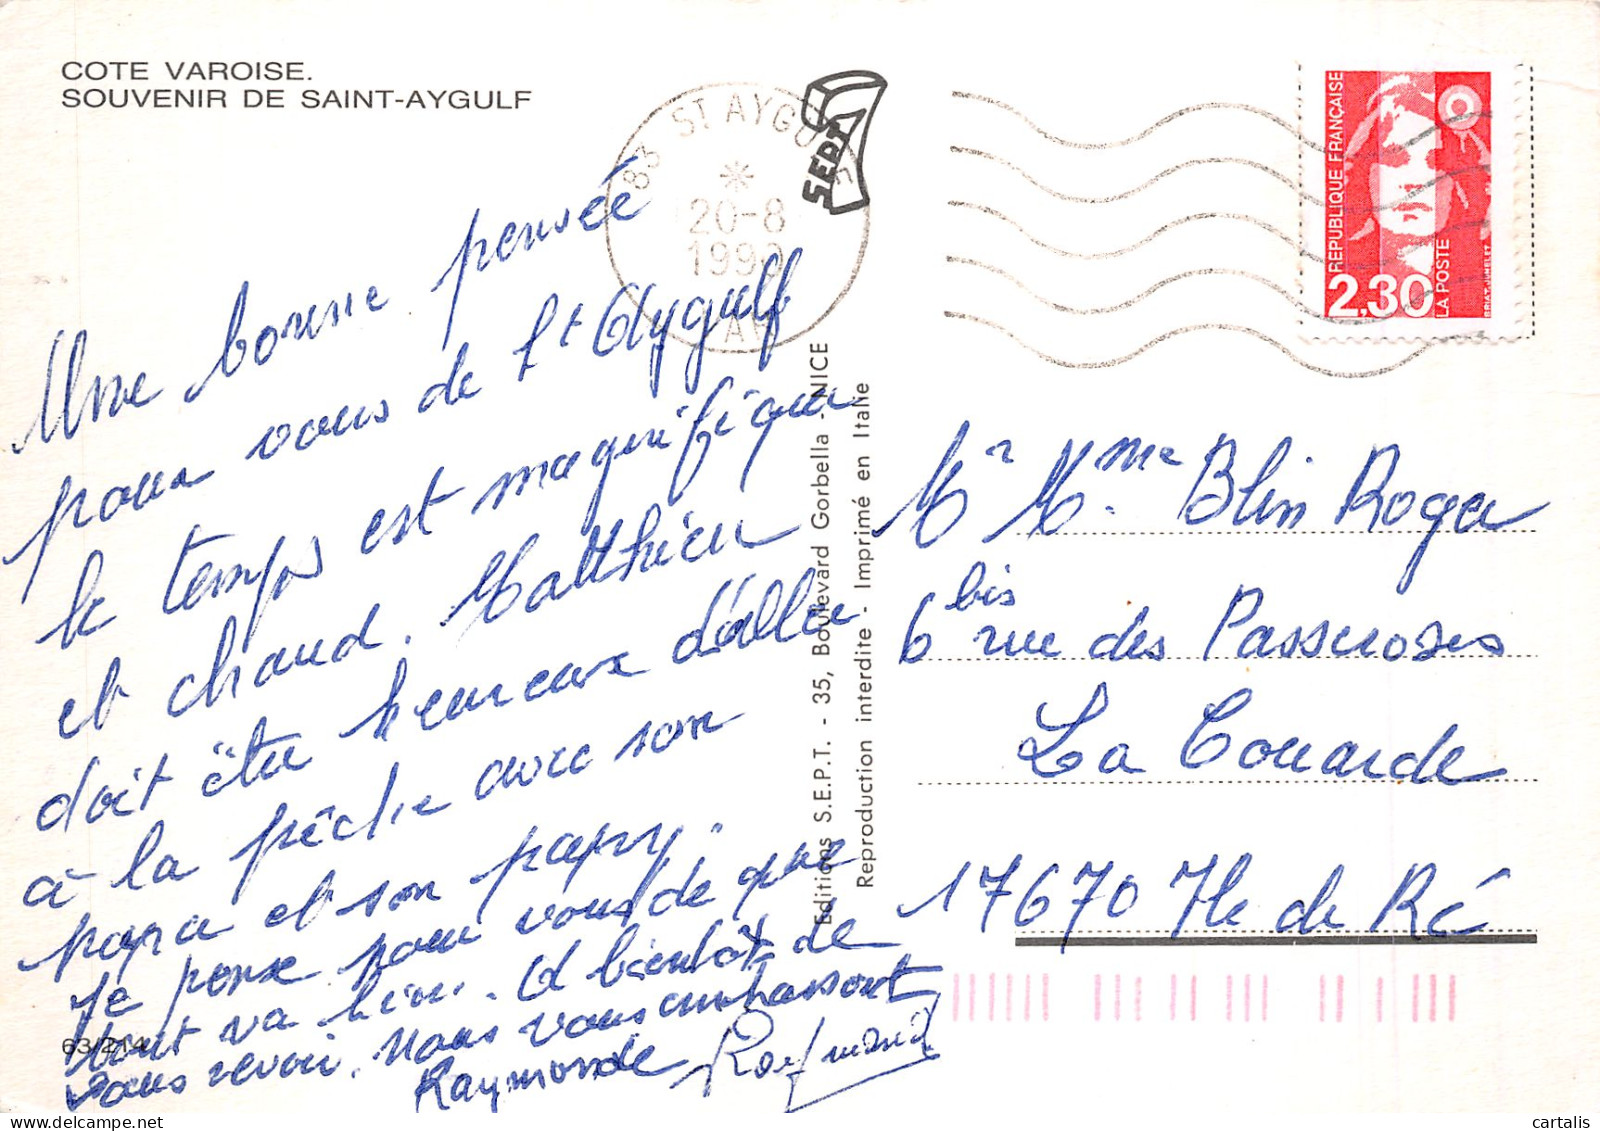 COTE VAROISE.
SOUVENIR DE SAINT-AYGULF
83 ST AYGULF
20-8
1990
SEPT
RÉPUBLIQUE FRANÇAISE
2,30
LA POSTE
BRIAT-JUMELET
Une bonne pensée
pour vous de St Aygulf
le temps est magnifique
et chaud. Matthieu
doit être heureux d'aller
à la pêche avec son
papa et son papy.
Je pense pour vous de que
tout va bien. A bientôt de
vous revoir. Nous vous embrassons
Raymonde Raymond
63/214
Editions S.E.P.T. - 35, Boulevard Gorbella - NICE
Reproduction interdite - Imprimé en Italie
Mr Mme Blin Roger
6 bis rue des Passeroses
La Couarde
17670 Ile de Ré
cartalis
delcampe.net